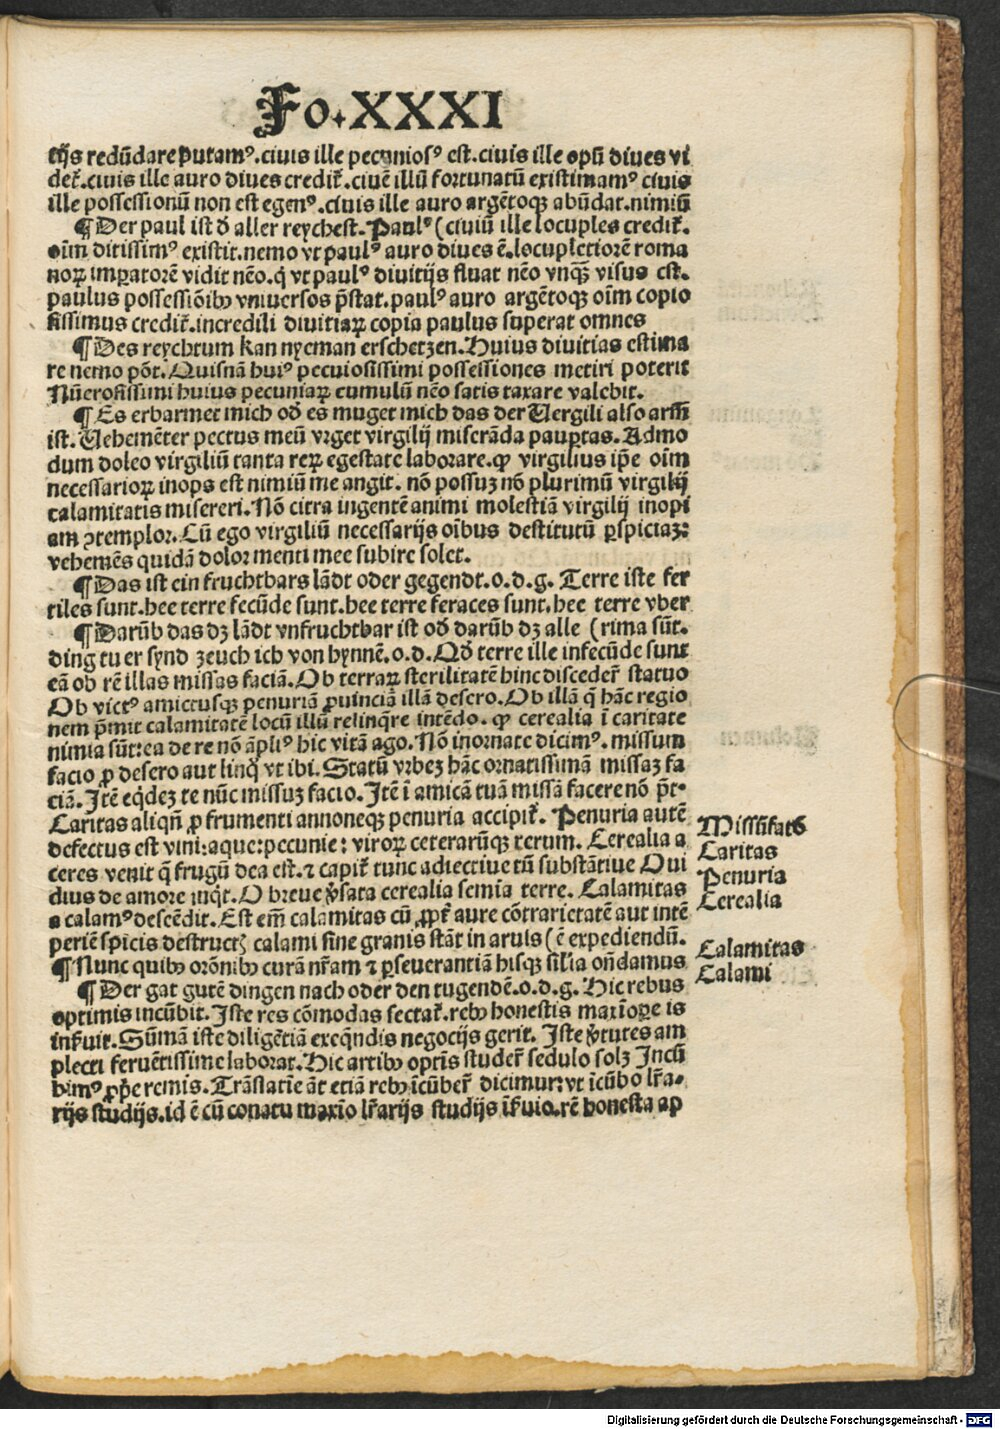 Fo.XXXI
tijs redūdare putamꝰ.ciuis ille pecuniosꝰ est.ciuis ille opū diues vi
det̄.ciuis ille auro diues credit̄.ciuē illū fortunatū existimamꝰ ciuis
ille possessionū non est egenꝰ.ciuis ille auro argētoqꝫ abūdat.nimiū
¶Der paul ist d̄ aller reychest.Paulꝰ (ciuiū ille locuples credit̄.
oīm ditissimꝰ existit.nemo vt paulꝰ auro diues ē.locupletiorē roma
noꝝ imꝑatorē vidit nēo.q̄ vt paulꝰ diuitijs fluat nēo vnqꝫ visus est.
paulus possessiōibꝫ vniuersos p̄stat.paulꝰ auro argētoqꝫ oīm copio
sissimus credit̄.incredili diuitiaꝝ copia paulus superat omnes
¶Des reychtum kan nyeman erschetzen.Huius diuitias estima
re nemo pōt.Quisnā huiꝰ pecuiosissimi possessiones metiri poterit
Nūerosissimi huius pecuniaꝝ cumulū nēo satis taxare valebit.
¶Es erbarmet mich od̄ es muget mich das der Vergili also arm̄
ist.Vehemēter pectus meū vrget virgilij miserāda pauꝑtas.Admo
dum doleo virgiliū tanta reꝝ egestate laborare.ꝙ virgilius ip̄e oīm
necessarioꝝ inops est nimiū me angit. nō possuꝫ nō plurimū virgilij
calamitatis misereri.Nō citra ingentē animi molestiā virgilij inopi
am ꝯtemplor.Cū ego virgiliū necessarijs oībus destitutū ꝑspiciaꝫ:
vehemēs quidā dolor menti mee subire solet.
¶Das ist ein fruchtbars lādt oder gegendt.o.d.g. Terre iste fer
tiles sunt.hee terre fecūde sunt.hee terre feraces sunt.hee terre vber
¶Darūb das dꝫ lādt vnfruchtbar ist od̄ darūb dꝫ alle (rima sūt.
ding tu er synd zeuch ich von hynnē.o.d.Qd̄ terre ille infecūde sunt
eā ob rē illas missas faciā.Ob terraꝝ sterilitatē hinc disceder̄ statuo
Ob victꝰ amictusqꝫ penuriā ꝓuinciā illā desero.Ob illā q̄ hāc regio
nem p̄mit calamitatē locū illū relinq̄re intēdo. ꝙ cerealia ī caritate
nimia sūt:ea de re nō āpliꝰ hic vitā ago.Nō inornate dicimꝰ. missum
facio ꝓ desero aut linq̄ vt ibi.Statū vrbeꝫ hāc ornatissimā missaꝫ fa
ciā.Itē eq̄deꝫ te nūc missuꝫ facio.Itē ī amicā tuā missā facere nō p̄t.
Caritas aliqn̄ ꝓ frumenti annoneqꝫ penuria accipit̄. Penuria autē
defectus est vini:aque:pecunie: viroꝝ ceterarūqꝫ rerum. Cerealia a
ceres venit q̄ frugū dea est.⁊ capit̄ tunc adiectiue tū substātiue Oui
dius de amore inq̄t.O breue v̄sata cerealia semia terre. Calamitas
a calamꝰ descēdit.Est em̄ calamitas cū ꝓpt̄ aure cōtrarietatē aut intē
periē spicis destructꝫ calami sine granis stāt in aruis (ē expediendū.
¶Nunc quibꝫ orōnibꝫ curā nr̄am ⁊ ꝑseuerantiā hisqꝫ silia on̄damus
¶Der gat gutē dingen nach oder den tugendē.o.d.g. Hic rebus
optimis incūbit.Iste res cōmodas sectat̄.rebꝫ honestis maxīoꝑe is
inf̄uit.Sūmā iste diligētiā exeq̄ndis negocijs gerit. Iste v̄tutes am
plecti feruētissime laborat.Hic artibꝫ optīs studet̄ sedulo solꝫ Incū
bimꝰ ꝓp̄e remis.Trāslatīe āt etiā rebꝫ īcūber̄ dicimur:vt īcūbo lr̄a-
rijs studijs.id ē cū conatu maxīo lr̄arijs studijs īf̄uio.rē honesta ap
Missūfacō
Caritas
Penuria
Cerealia
Calamitas
Calami
Digitalisierung gefördert durch die Deutsche Forschungsgemeinschaft - DFG